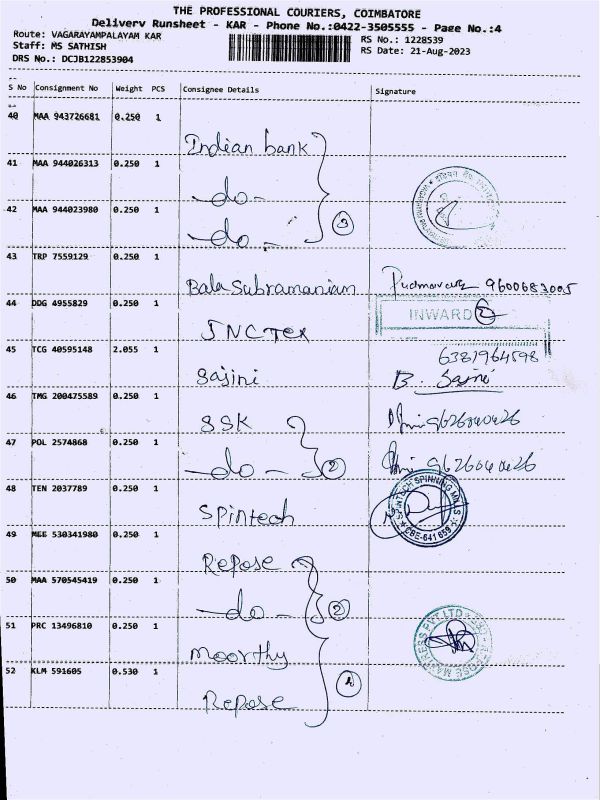 THE PROFESSIONAL COURIERS, COIMBATORE
Delivery Runsheet - KAR - Phone No.:0422-3505555 - Page No.:4
Route: VAGARAYAMPALAYAM KAR
RS No.: 1228539
Staff: MS SATHISH
RS Date: 21-Aug-2023
DRS No.: DCJB122853904
S No Consignment No Weight PCS Consignee Details Signature
40 MAA 943726681 0.250 1
Indian bank
41 MAA 944026313 0.250 1
- do -
42 MAA 944023980 0.250 1
- do - 3
43 TRP 7559129 0.250 1
Bala Subramanian 9600683005
44 DDG 4955829 0.250 1
JNC Tex INWARD 2
45 TCG 40595148 2.055 1
6381964598
Sajini B. Sajini
46 TMG 200475589 0.250 1
SSK 9626040426
47 POL 2574868 0.250 1
- do - 2 9626040426
48 TEN 2037789 0.250 1
Spintech SPINTECH SPINNING MILLS CBE-641 659
49 MEE 530341980 0.250 1
Repose
50 MAA 570545419 0.250 1
- do - 2
51 PRC 13496810 0.250 1
Moorthy
52 KLM 591605 0.530 1
Repose